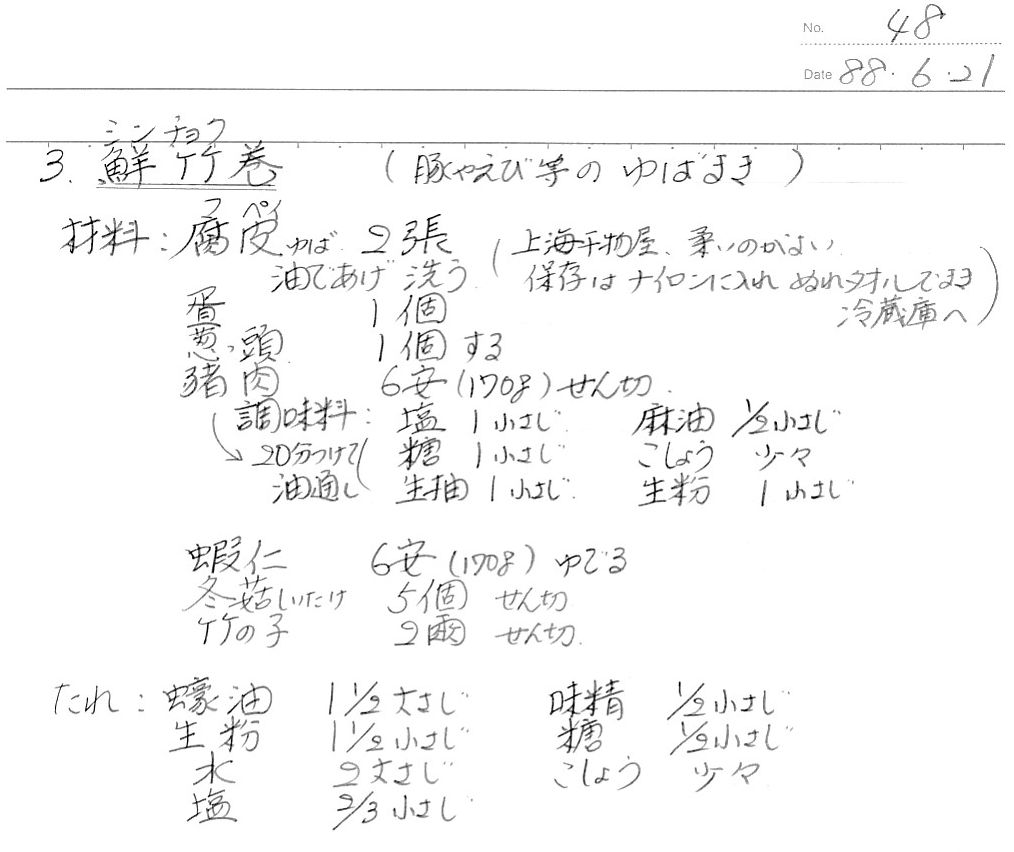 No. 48
Date 88・6・21
シンチョク
3. 鮮竹巻 (豚やえび等のゆばまき)
フペイ
材料: 腐皮ゆば 2張 (上海干物屋、柔いのがよい
油であげ 洗う 保存はナイロンに入れ ぬれタオルでまき
冷蔵庫へ)
蛋 1個
葱頭 1個 する
猪肉 6安(170g)せん切
調味料: 塩 1小さじ 麻油 1/2小さじ
20分つけて 糖 1小さじ こしょう 少々
油通し 生抽 1小さじ 生粉 1小さじ
蝦仁 6安(170g) ゆでる
冬菇しいたけ 5個 せん切
竹の子 2兩 せん切
たれ: 蠔油 1 1/2大さじ 味精 1/2小さじ
生粉 1 1/2小さじ 糖 1/2小さじ
水 2大さじ こしょう 少々
塩 2/3小さじ